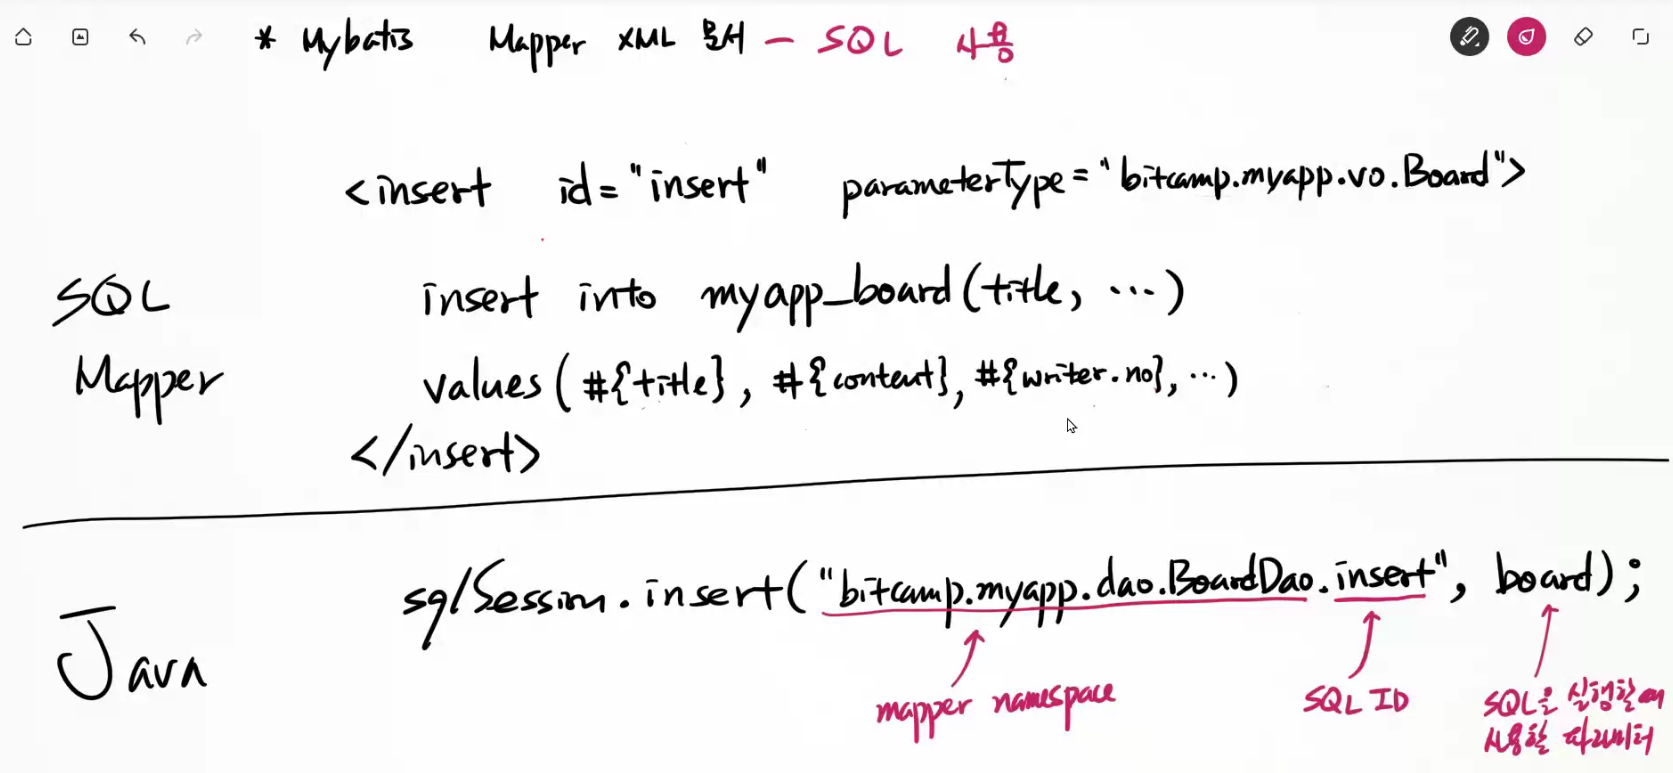 * Mybatis Mapper XML 문서 - SQL 사용
<insert id="insert" parameterType="bitcamp.myapp.vo.Board">
SQL Mapper
insert into myapp_board(title, ...)
values(#{title}, #{content}, #{writer.no}, ...)
</insert>
Java
sqlSession.insert("bitcamp.myapp.dao.BoardDao.insert", board);
mapper namespace
SQL ID
SQL을 실행할 때
사용할 파라미터